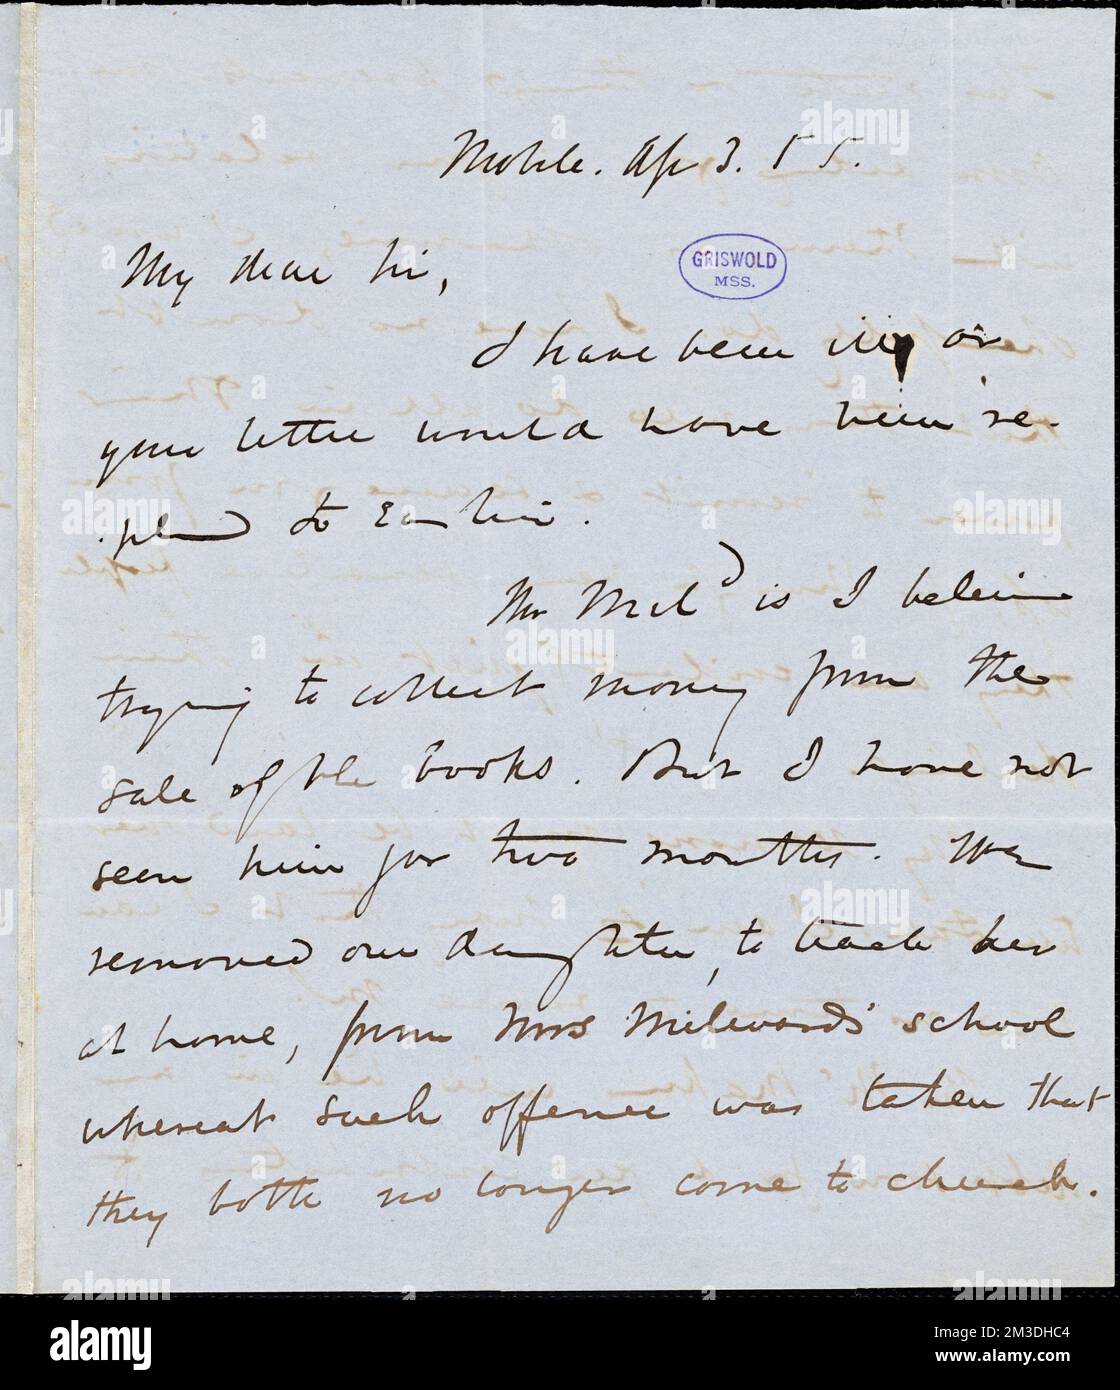 Mobile. Ap 3. 55.
My dear Sir,
GRISWOLD
MSS.
I have been ill, or
your letter would have been re-
plied to Earlier.
Mr Milᵈ is I believe
trying to collect money from the
sale of the books. But I have not
seen him for two months. We
removed our daughter, to teach her
at home, from Mrs Milward's school
whereat such offence was taken that
they both no longer come to church.
alamy
Image ID: 2M3DHC4
www.alamy.com